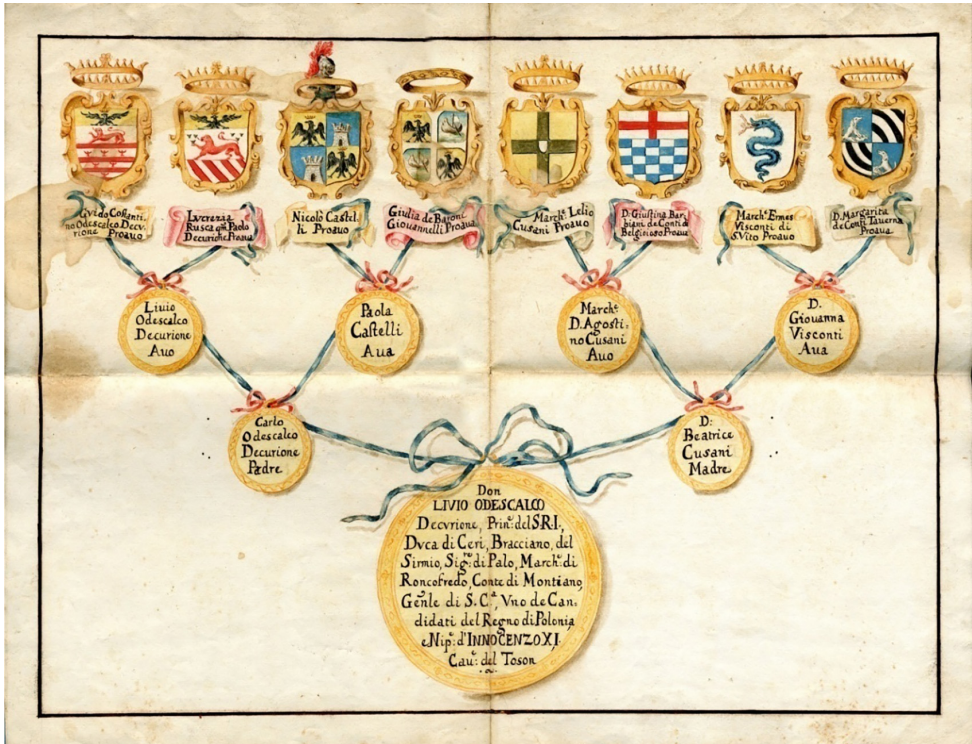 Gvido Costanti,
no Odescalco Decv,
rione Proavo
Lvcrezia
Rusca qm Paolo
Decurione Proaua
Nicolò Castel,
li Proauo
Giulia de Baroni
Giouannelli Proaua
March: Lelio
Cusani Proauo
D. Giustina Bar,
biani de Conti di
Belgiioso Proaua
March: Ermes
Visconti di
S. Vito Proauo
D. Margarita
de Conti Tauerna
Proaua
Liuio
Odescalco
Decurione
Auo
Paola
Castelli
Aua
March:
D. Agosti,
no Cusani
Auo
D.
Giouanna
Visconti
Aua
Carlo
Odescalco
Decurione
Padre
D:
Beatrice
Cusani
Madre
Don
LIVIO ODESCALCO
Decvrione, Prin: del S.R.I.,
Dvca di Ceri, Bracciano, del
Sirmio, Sig:re di Palo, March: di
Roncofredo, Conte di Montiano,
Gen̄le di S. C.a, Vno de Can,
didati del Regno di Polonia,
e Nip: d'INNOCENZO XI,
Cau: del Toson